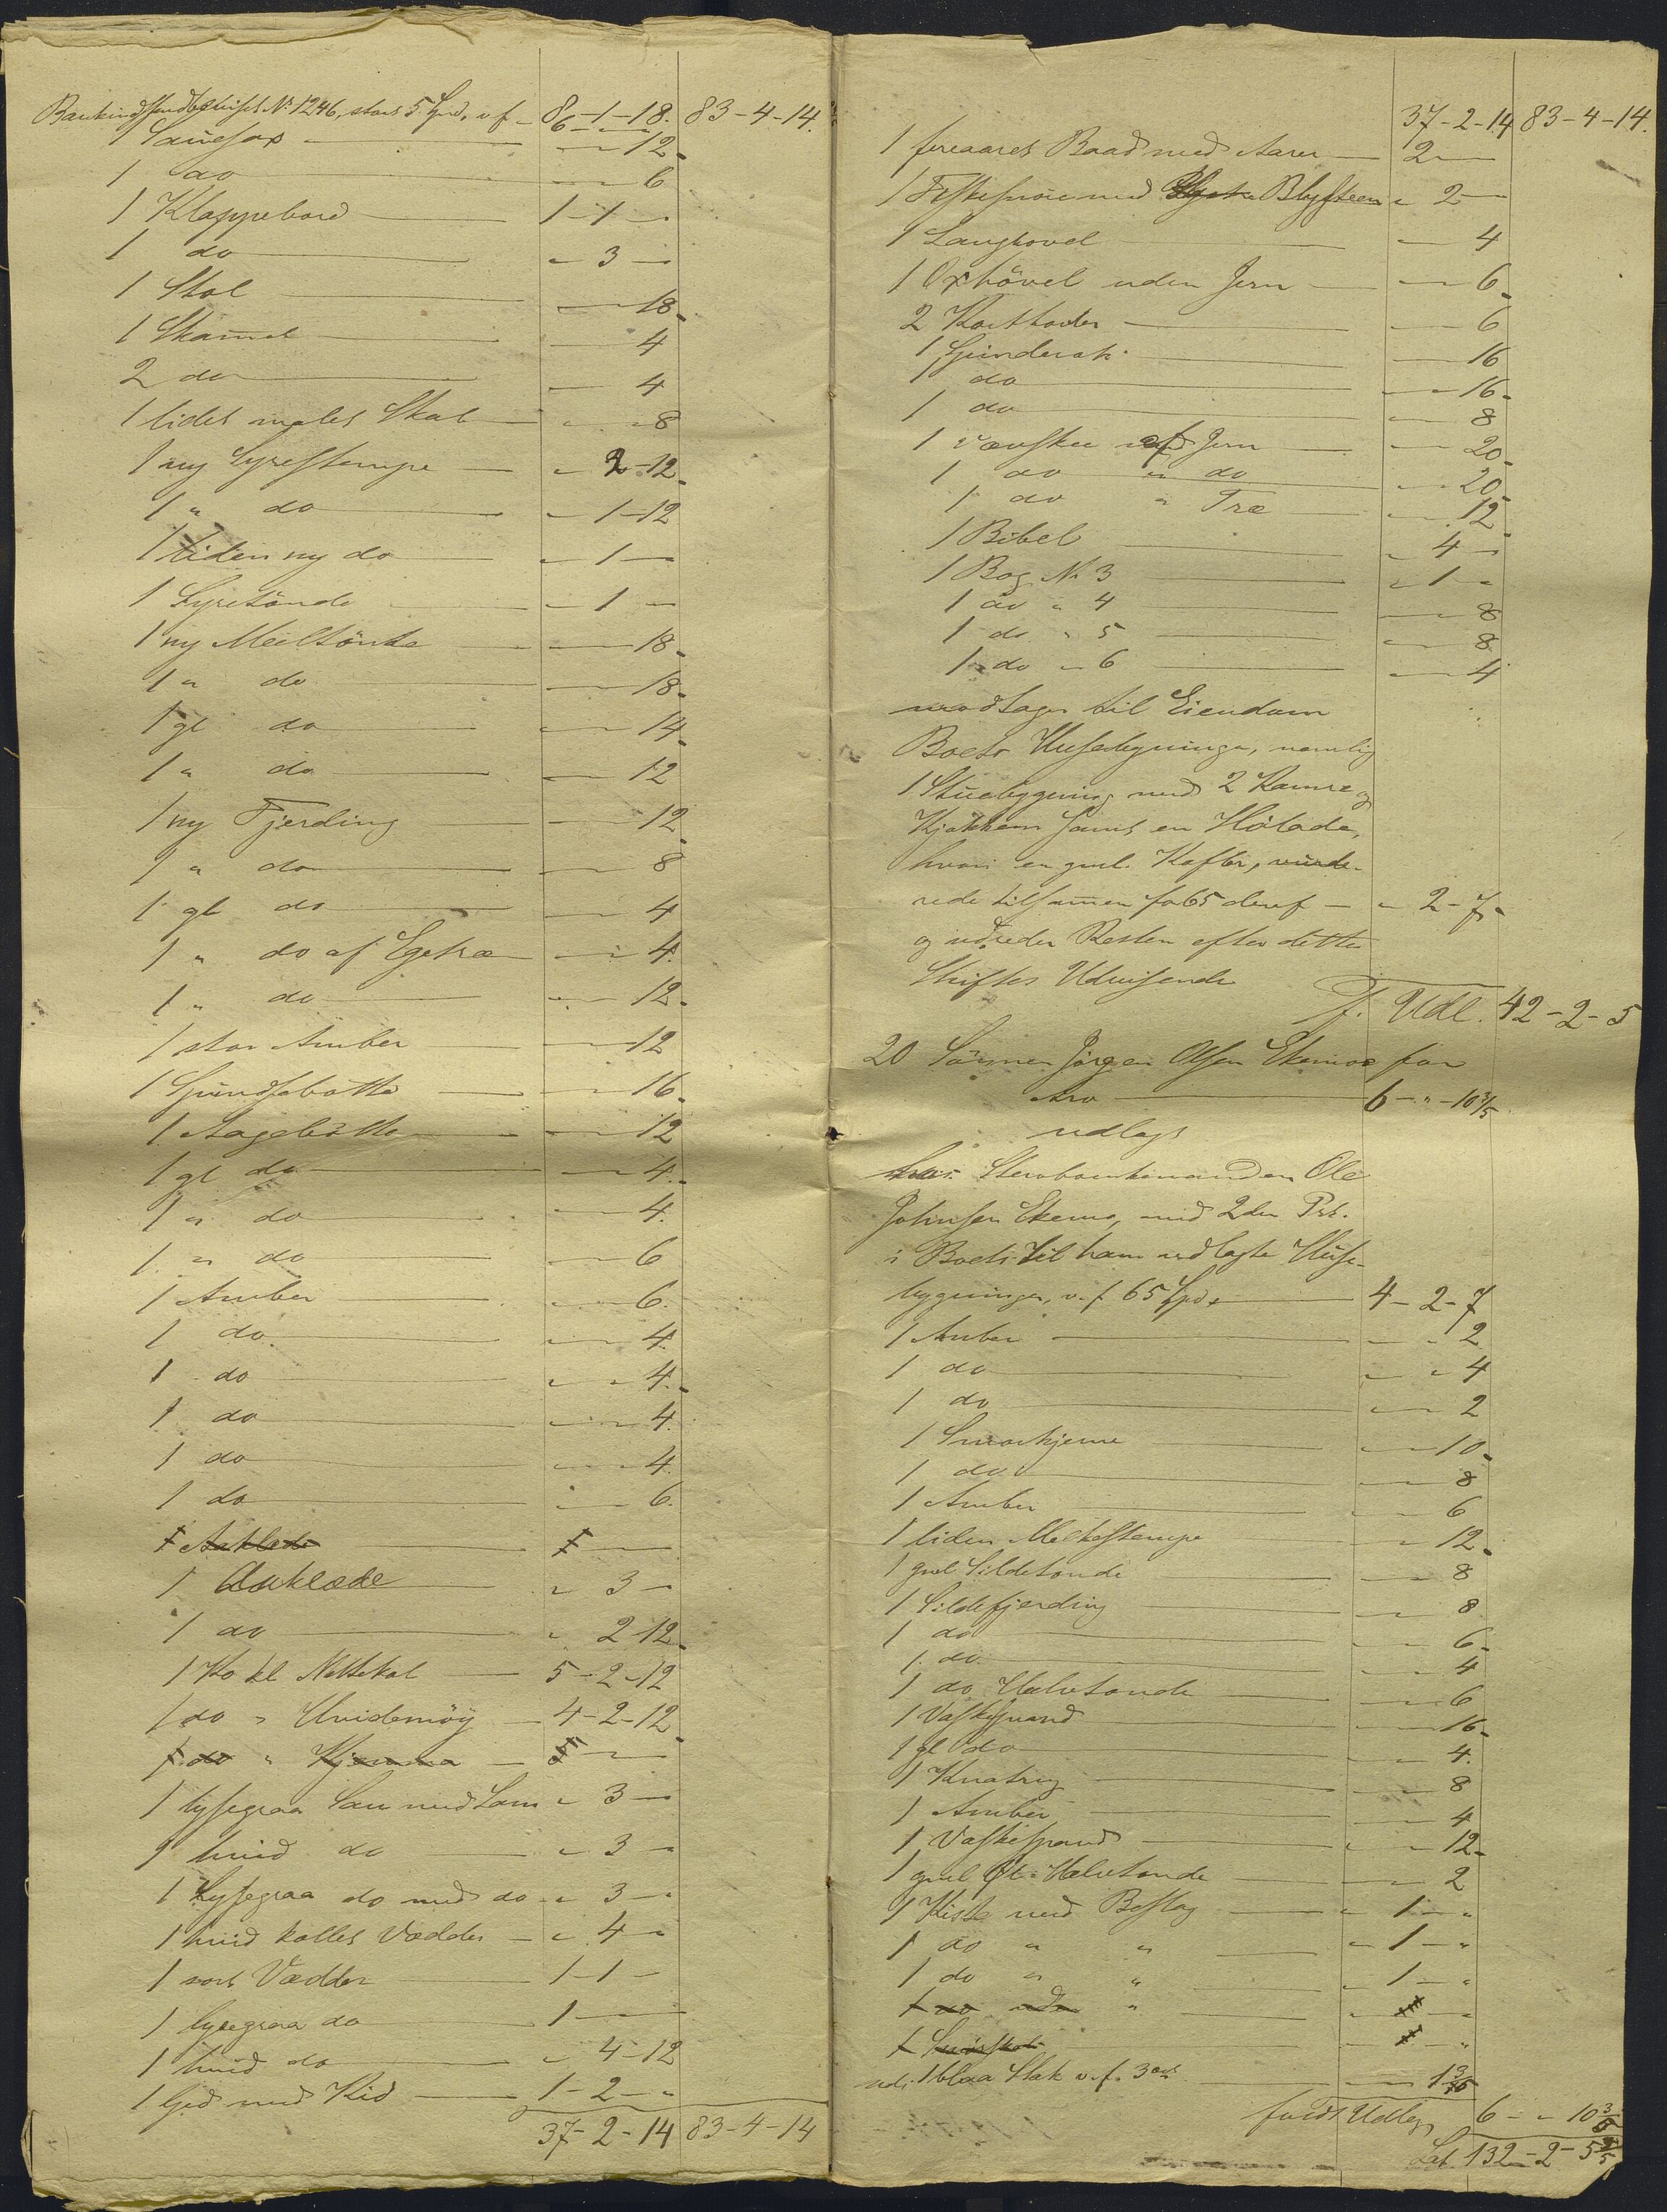 Bankindskudsbeviset No 1246, stort 5 Spd, v. f. 8-1-18. 83-4-14.
1 Sauesax - - 12
1 do - - 6
1 Klappebord 1-1-
1 do - 3 -
1 Stol - - 18
1 Skammel - - 4
2 do - - 4
1 lidet malet Skab - - 8
1 ny Syrestampe - 2-12
1 " do - 1-12
1 liden ny do - 1 -
1 Syretönde - 1 -
1 ny Meeltönde - - 18
1 " do - - 18
1 gl do - - 14
1 " do - - 12
1 ny Fjerding - - 12
1 " do - - 8
1 gl do - - 4
1 " do af Egetræ - - 4
1 " do - - 12
1 stor Amber - - 12
1 Spundsbötte - - 16
1 Aagebötte - - 12
1 gl do - - 4
1 " do - - 4
1 " do - - 6
1 Amber - - 6
1 do - - 4
1 do - - 4
1 do - - 4
1 do - - 4
1 do - - 6
1 Aaklæde 1 -
1 Aaklæde - 3 -
1 do - 2-12
1 Ko kl Nettekol 5-2-12
1 do " Hvidemöy 4-2-12
1 do " 5 -
1 lysegraa Sau med Lam - 3 -
1 hvid do - 3 -
1 Lysegraa do med do - 3 -
1 hvid kollet Vædder - 4 -
1 sort Vædder 1-1-
1 lysegraa do 1 - -
1 hvid do - 4-12
1 Gjed med Kid 1-2-"
37-2-14 83-4-14
37-2-14 83-4-14.
1 fireaaret Baad med Aarer 2 -
1 Fiskesnöre med Blysteen - 2 -
1 Langhövel - - 4
1 Oxhövel uden Jern - - 6
2 Kost - - 6
1 - - 16
1 do - - 16
1 do - - 8
1 Vævskee af Jern - - 20
1 do " do - - 20
1 do " Træ - - 12
1 Bibel - 4 -
1 Bog No 3 - 1 -
1 do " 4 - - 8
1 do " 5 - - 8
1 do " 6 - - 4
modtager til Eiendom
Boets Husebygninger, nemlig
1 Stuebygning med 2 Kamre og
Kjökken samt en Hölade,
hvori en gml. , vurde-
rede tilsammen for 65 deraf - 2-7
og udreder Resten efter dette
Skiftes Udvisende
F. Udl. 42-2-5
20 Sönnen Jörgen Olsen Ekemoe for
Arv 6-"-10 3/5
udlagt
hos Sterboenkemanden Ole
Johnsen Ekemo, med 2den Prt.
i Boets til ham udlagte Huse-
bygninger, v. f. 65 Spd. 4-2-7
1 Amber - - 2
1 do - - 4
1 do - - 2
1 Smørkjerne - - 10
1 do - - 8
1 Amber - - 6
1 liden Melkestampe - - 12
1 gml Sildetönde - - 8
1 Sildefjerding - - 8
1 do - - 6
1 do - - 4
1 do Halvtönde - - 6
1 Vaskespand - - 16
1 gl do - - 4
1 - - 8
1 Amber - - 4
1 Vaskespand - - 12
1 gml Öl-Halvtönde - - 2
1 Kiste med Beslag - 1 -"
1 do " " - 1 -"
1 do " " - 1 -"
1 do uden " - 1 -
1 - 1 -"
udi 1 blaa Stak v. f. 3 ort - - 1 3/5
forest Udlæg 6 - - 10 3/5
Lat. 132-2-5 3/5